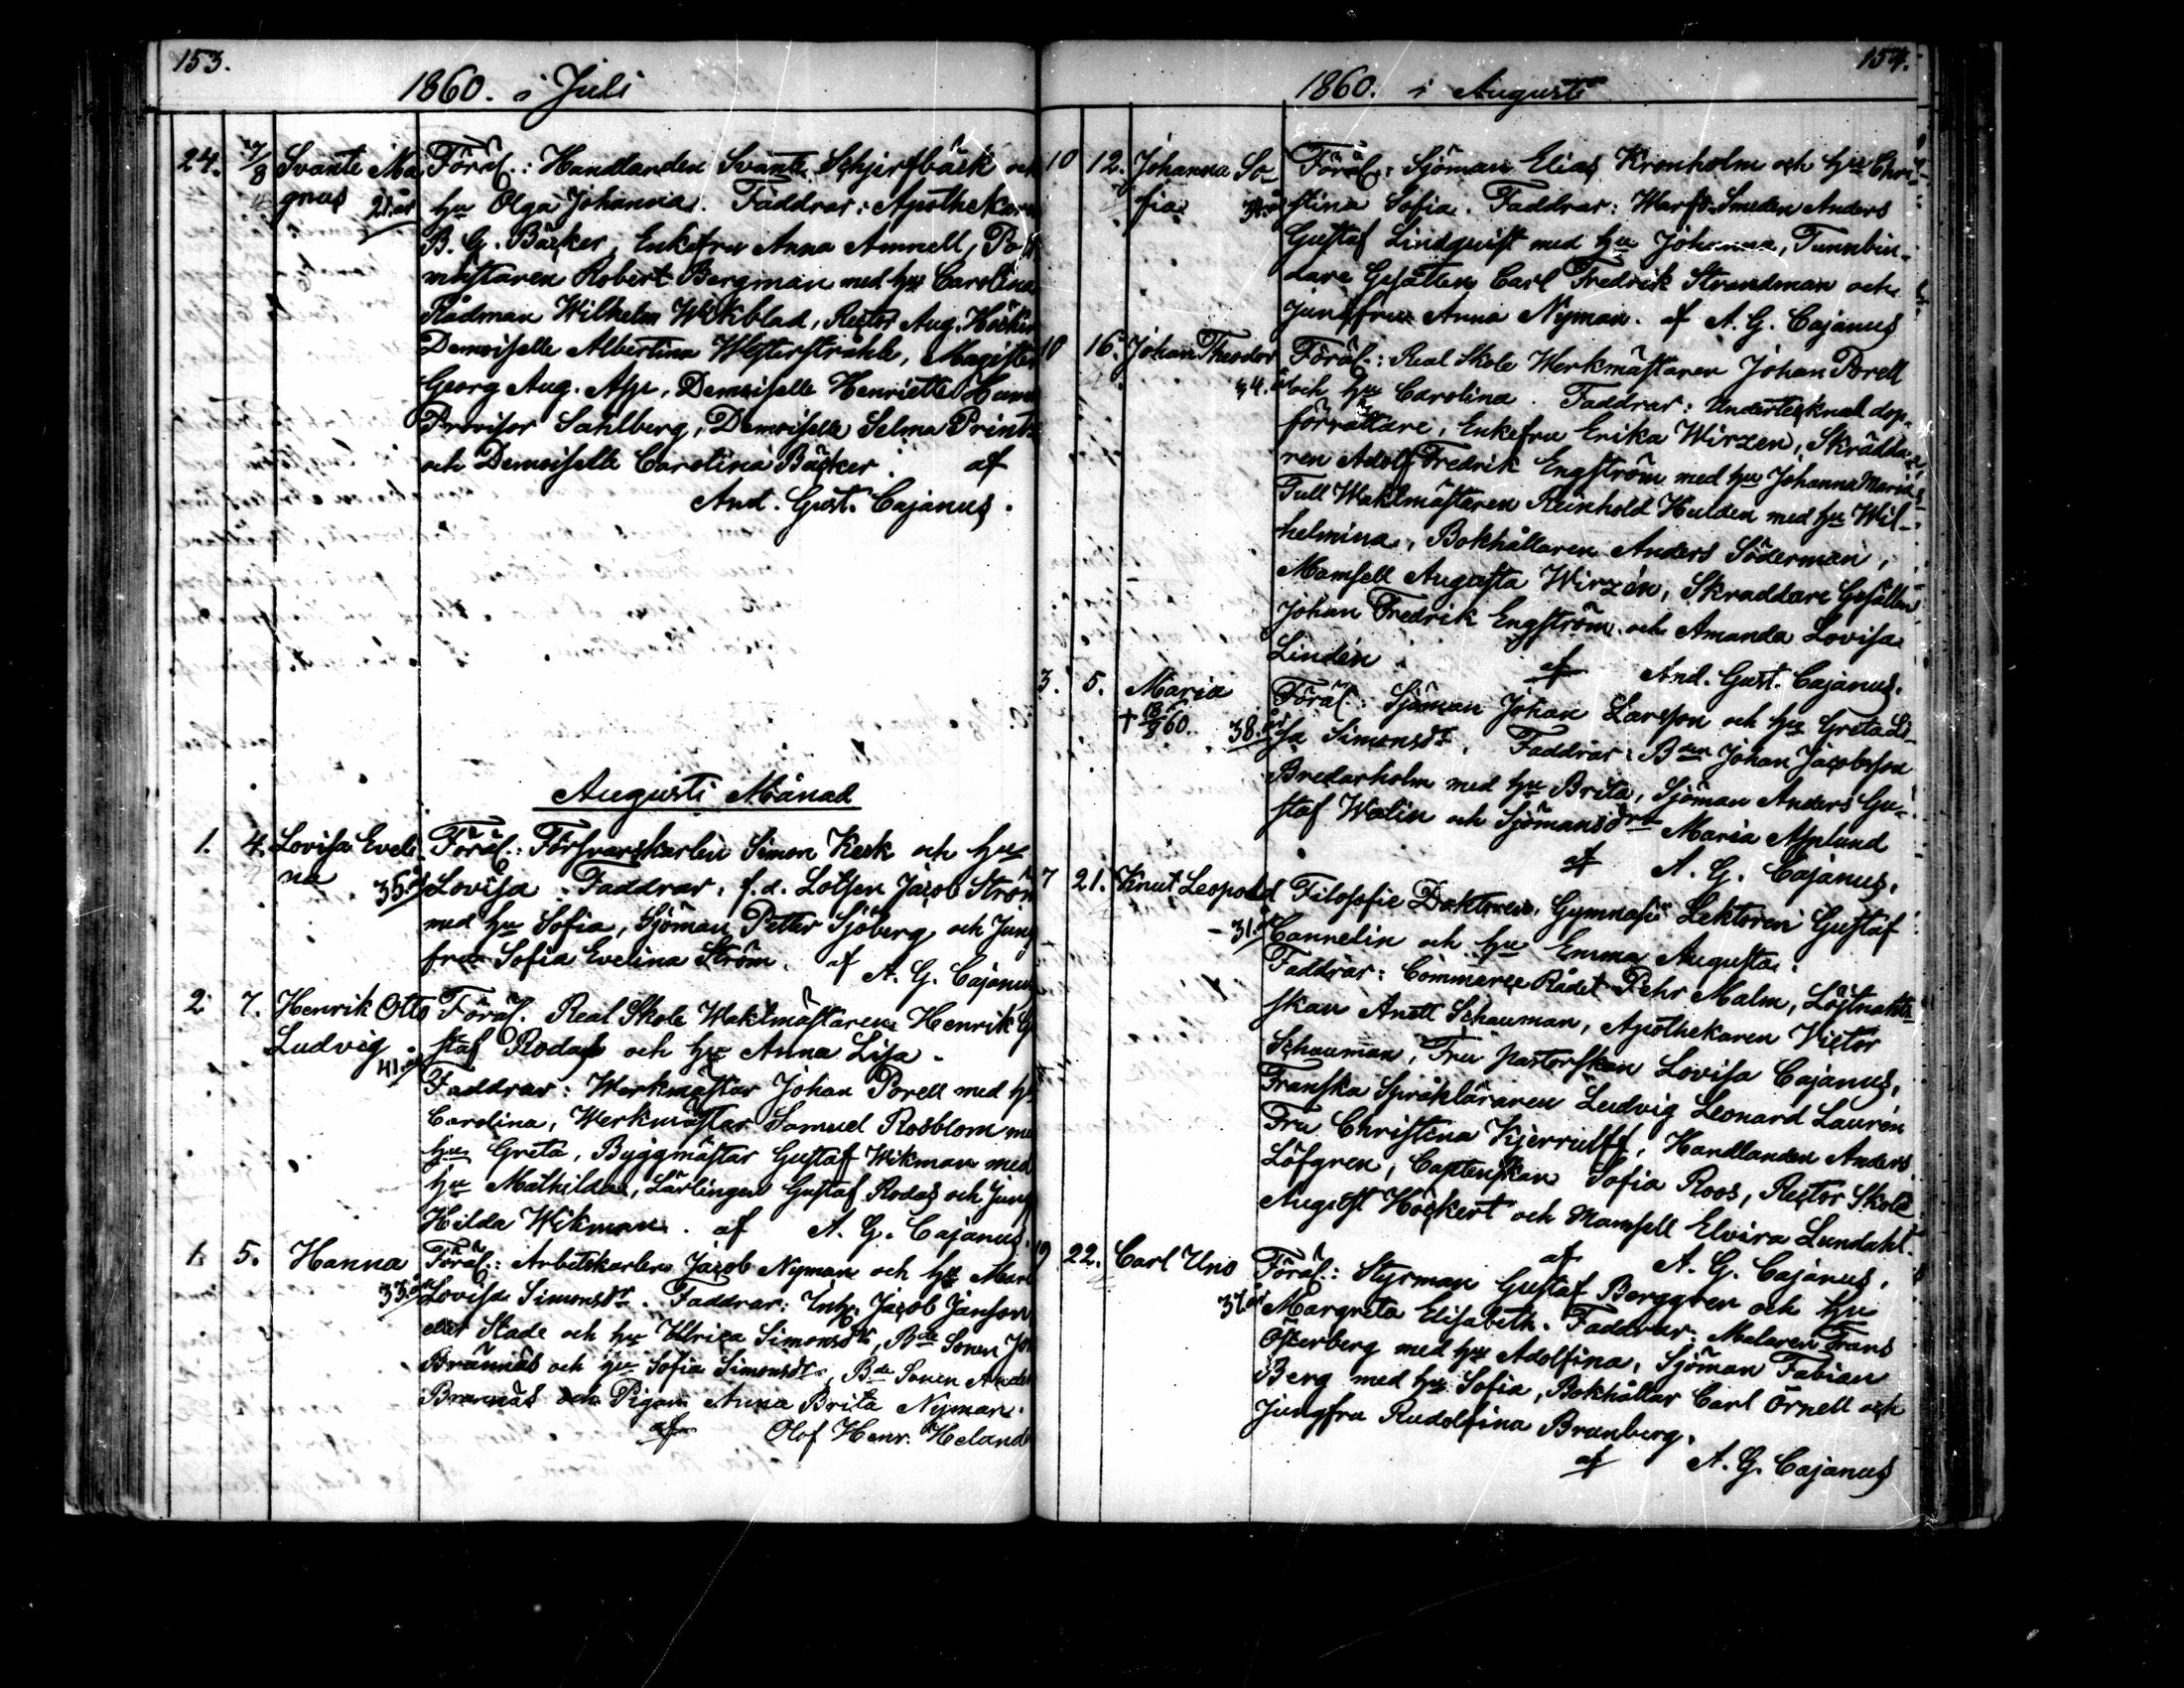 153.
1860. i Juli
24. 7/8 Svante Ma Föräl.: Handlanden Svante Schjerfbäck och
gnus 21. år hu Olga Johanna. Faddrar: Apothekaren
B. G. Bäcker, Enkefru Anna Ammell, Po
mästaren Robert Bergman med hu Carolina
Rådman Wilhelm Wikblad, Rector Aug. Höcker
Demoiselle Albertina Westerstråhle, Magister
Georg Aug. Asp, Demoiselle Henriette
Provisor Sahlberg, Demoiselle Selma Printz
och Demoiselle Carolina Bäcker. af
And. Gust. Cajanus.
Augusti Månad
1. 4. Lovisa Eveli- Föräl.: Försvarskarlen Simon Keck och hu
na 35. år Lovisa. Faddrar, f.d. Lotsen Jacob Ström
med hu Sofia, Sjöman Petter Sjöberg och Jung
fru Sofia Evelina Ström. af A. G. Cajanus
2 7. Henrik Otto Föräl. Real Skole Waktmästaren Henrik G
Ludvig. 41. år staf Rodas och hu Anna Lisa.
Faddrar: Werkmästar Johan Porell med hu
Carolina, Werkmästar Samuel Rosblom med
hu Greta, Byggmästar Gustaf Wikman med
hu Mathilda, Lärlingen Gustaf Rodas och Jung
Hilda Wikman. af A. G. Cajanus.
1. 5. Hanna Föräl.: Arbetskarlen Jacob Nyman och hu Mari
33. år Lovisa Simonsdr. Faddrar: Inh. Jacob Janson
eller Stade och hu Ulrica Simonsdr, Bde Sonen Joh
Brännäs och hu Sofia Simonsdr, Bde Sonen Ander
Brännäs och Pigan Anna Brita Nyman.
af Olof Henr. Helande
154.
1860. i Augusti
10 12. Johanna So- Föräl.: Sjöman Elias Kronholm och hu Chri-
fia. stina Sofia. Faddrar: Warfs Smeden Anders
Gustaf Lindqvist med hu Johanna, Tunnbin-
dare Gesällen Carl Fredrik Strandman och
jungfrun Anna Nyman. af A. G. Cajanus
10 16. Johan Theodor Föräl.: Real Skole Werkmästaren Johan Porell
34. år och hu Carolina. Faddrar: Undertecknad dop-
förrättare, Enkefru Erika Wirzen, Skrädda-
ren Adolf Fredrik Engström med hu Johanna Maria
Tull Waktmästaren Reinhold Hulden med hu Wil-
helmina, Bokhållaren Anders Söderman,
Mamsell Augusta Wirzén, Skraddare Gesällen
Johan Fredrik Engström och Amanda Lovisa
Lindén. af And. Gust. Cajanus.
3. 5. Maria Föräl.: Sjöman Johan Larsson och hu Greta Li-
† 13/8 60. 38. år sa Simonsdr. Faddrar: Bden Johan Jacobsson
Bredarholm med hu Brita, Sjöman Anders Gu-
staf Walin och Sjömansdrt Maria Asplund
af A. G. Cajanus.
7 21. Knut Leopold Filosofie Doktoren, Gymnasii Lektoren Gustaf
31. år Cannelin och hu Emma Augusta.
Faddrar: Commerce Rådet Pehr Malm, Löjtnants-
skan Anett Schauman, Apothekaren Victor
Schauman, Fru pastorskan Lovisa Cajanus,
Franska Språkläraren Ludvig Leonard Laurén
Fru Christina Kjerrulff, Handlanden Anders
Löfgren, Captenskan Sofia Roos, Rector Skole
August Höckert och Mamsell Elvira Lundahl.
af A. G. Cajanus.
19 22. Carl Uno Föräl.: Styrman Gustaf Berggren och hu
37. år Margreta Elisabeth. Faddrar: Malaren Frans
Österberg med hu Adolfina, Sjöman Fabian
Berg med hu Sofia, Bokhållar Carl Örnell och
Jungfru Rudolfina Brunberg.
af A. G. Cajanus